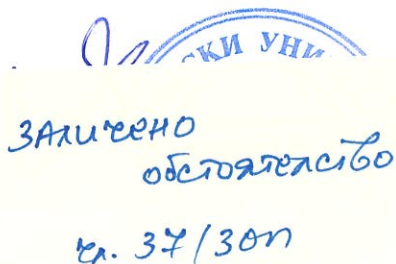 СКИ УНИ
ЗАЛИЧЕНО
обстоятелство
чл. 37/ЗОП